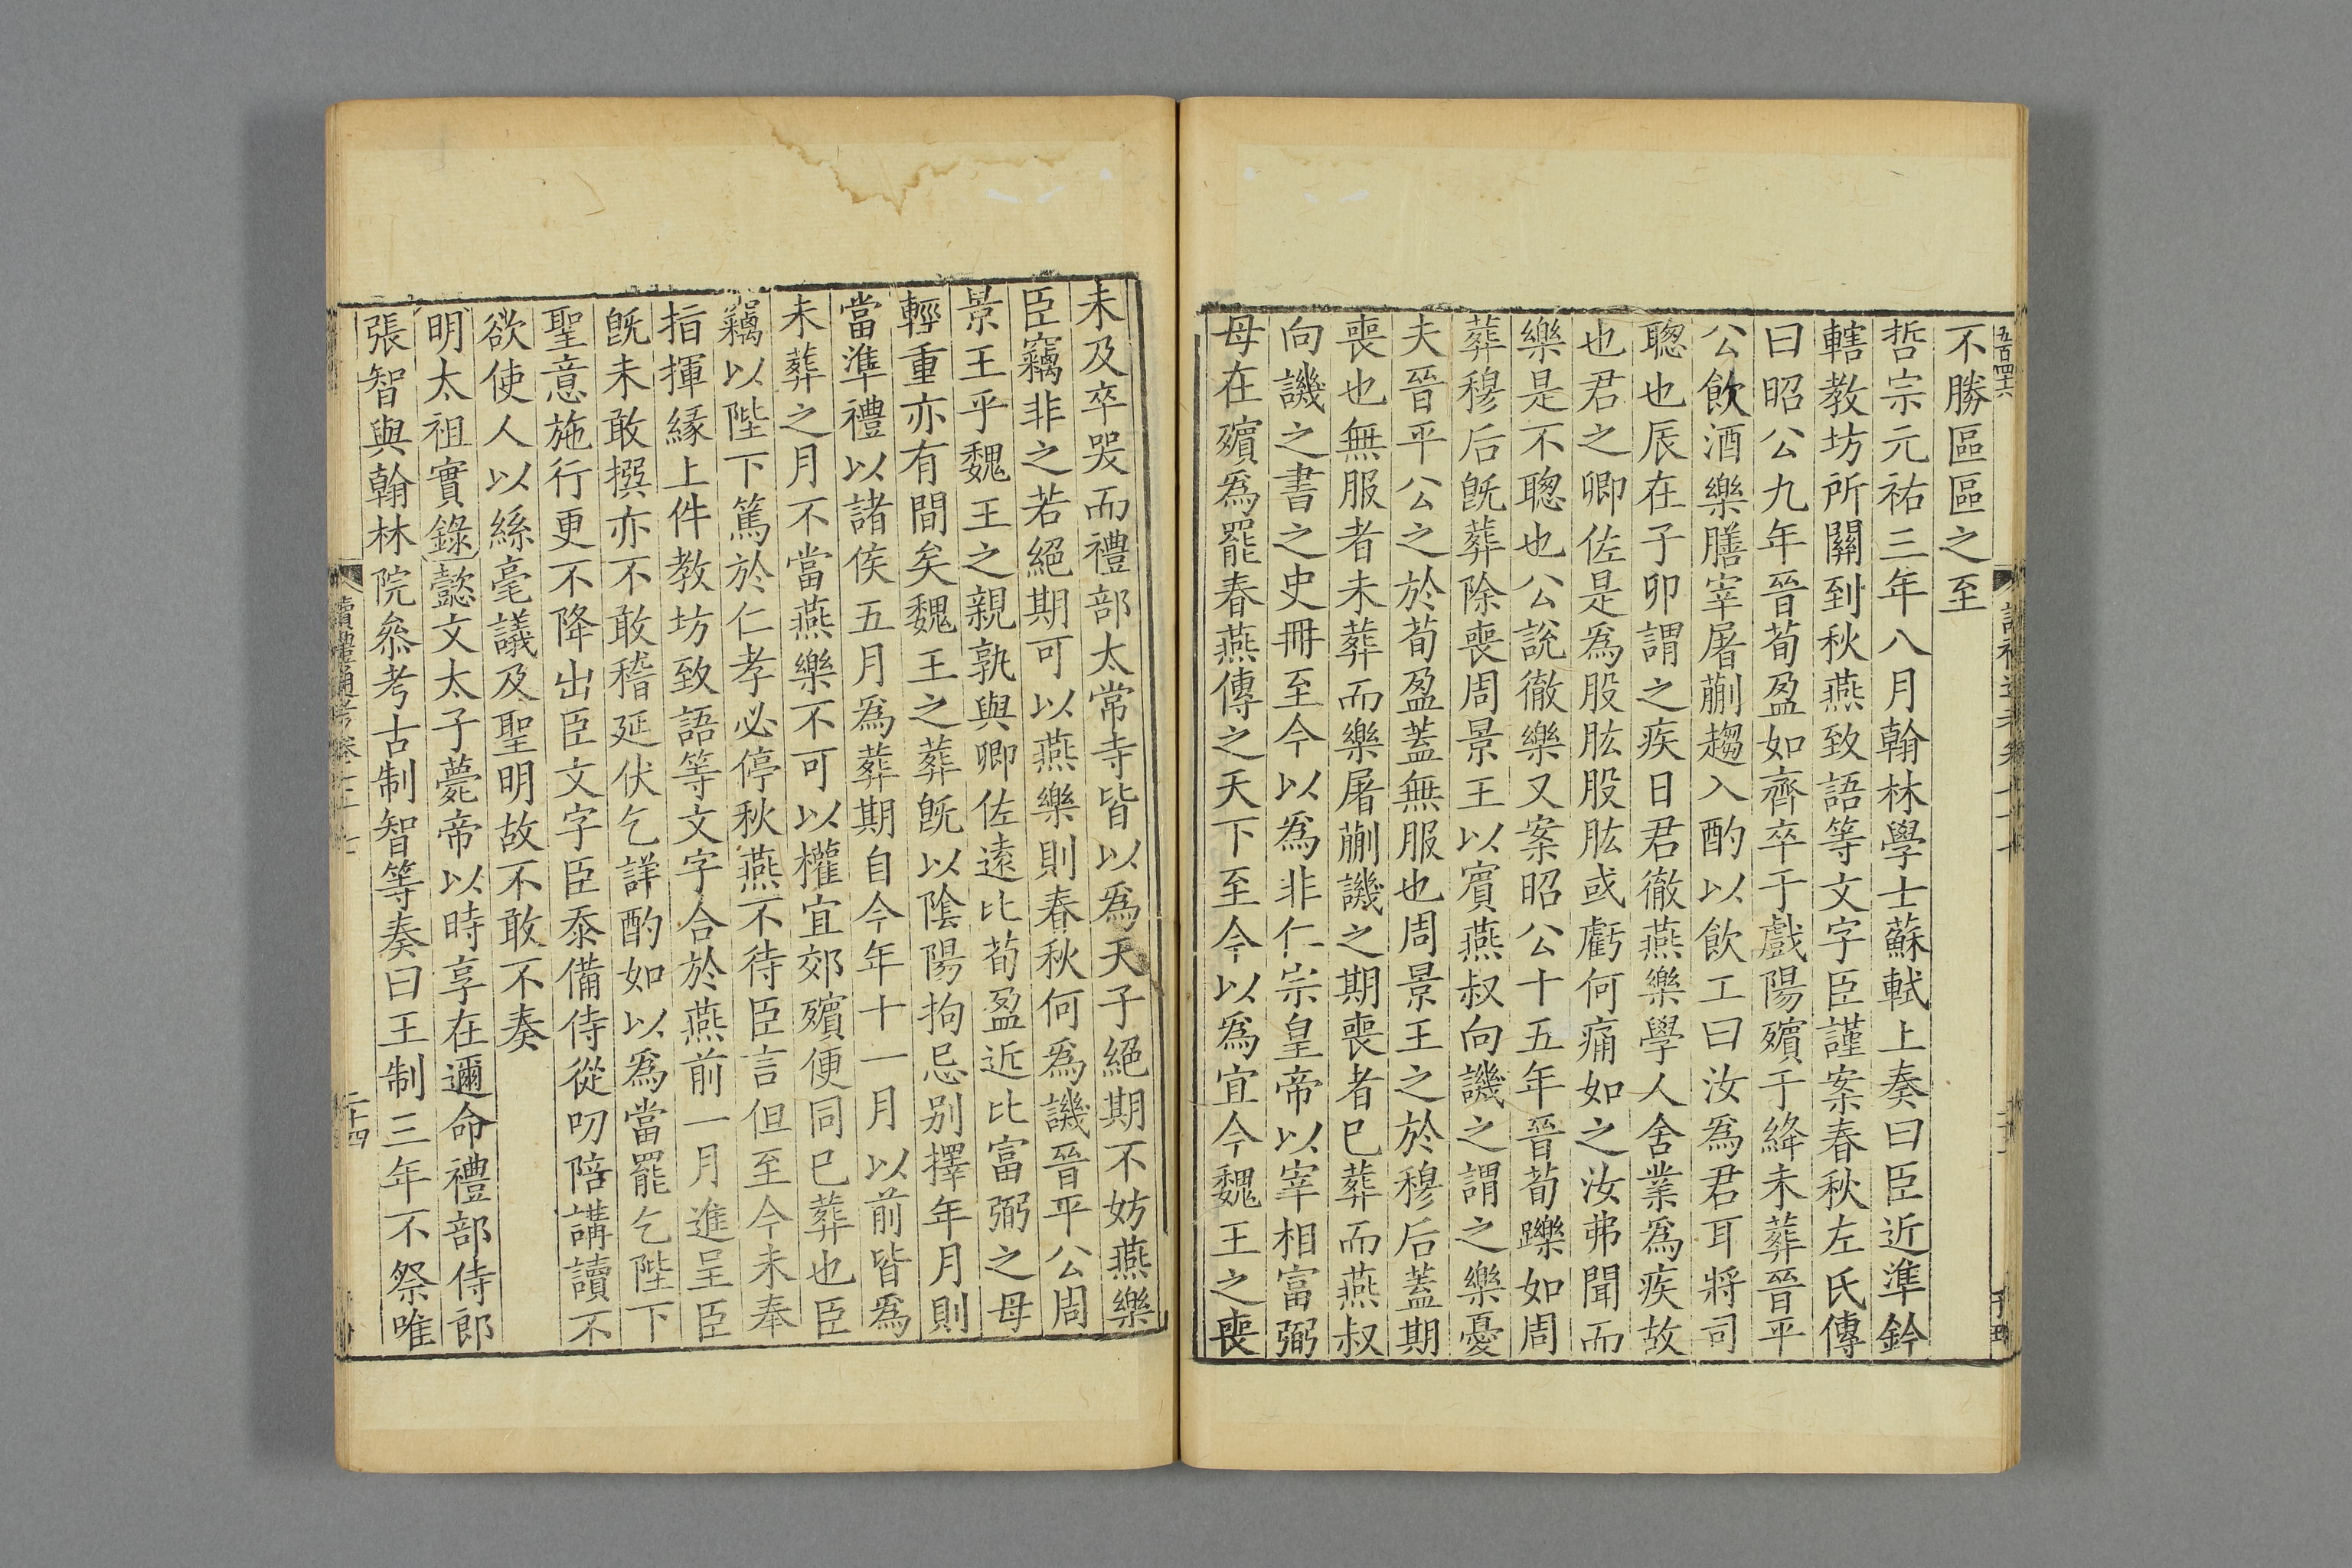 五百四十六
不勝區區之至
哲宗元祐三年八月翰林學士蘇軾上奏曰臣近準鈐
轄教坊所關到秋燕致語等文字臣謹案春秋左氏傳
曰昭公九年晉荀盈如齊卒于戲陽殯于絳未葬晉平
公飲酒樂膳宰屠蒯趨入酌以飲工曰汝爲君耳將司
聰也辰在子卯謂之疾日君徹燕樂學人舍業爲疾故
也君之卿佐是爲股肱股肱或虧何痛如之汝弗聞而
樂是不聰也公說徹樂又案昭公十五年晉荀躒如周
葬穆后旣葬除喪周景王以賓燕叔向譏之謂之樂憂
夫晉平公之於荀盈蓋無服也周景王之於穆后蓋期
喪也無服者未葬而樂屠蒯譏之期喪者已葬而燕叔
向譏之書之史冊至今以爲非仁宗皇帝以宰相富弼
母在殯爲罷春燕傳之天下至今以爲宜今魏王之喪
未及卒哭而禮部太常寺皆以爲天子絕期不妨燕樂
臣竊非之若絕期可以燕樂則春秋何爲譏晉平公周
景王乎魏王之親孰與卿佐遠比荀盈近比富弼之母
輕重亦有間矣魏王之葬旣以陰陽拘忌別擇年月則
當準禮以諸侯五月爲葬期自今年十一月以前皆爲
未葬之月不當燕樂不可以權宜郊殯便同已葬也臣
竊以陛下篤於仁孝必停秋燕不待臣言但至今未奉
指揮緣上件教坊致語等文字合於燕前一月進呈臣
旣未敢撰亦不敢稽延伏乞詳酌如以爲當罷乞陛下
聖意施行更不降出臣文字臣忝備侍從叨陪講讀不
欲使人以絲毫議及聖明故不敢不奏
明太祖實錄懿文太子薨帝以時享在邇命禮部侍郎
張智與翰林院叅考古制智等奏曰王制三年不祭唯
讀禮通考卷
二十四